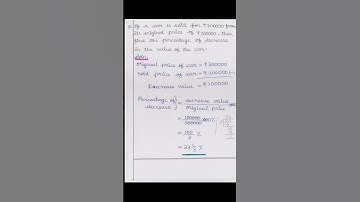 5. If a car is sold for ₹200000 from
its original price of ₹300000, then
find the percentage of decrease
in the value of the car.
Soln:
Original price of car = ₹300000
Sold price of car = ₹200000 (-)
Decrease value = ₹100000
Percentage of decrease } = decrease value / original price
= 100000 / 300000 × 100%
= 100 / 3 %
= 33 1/3 %